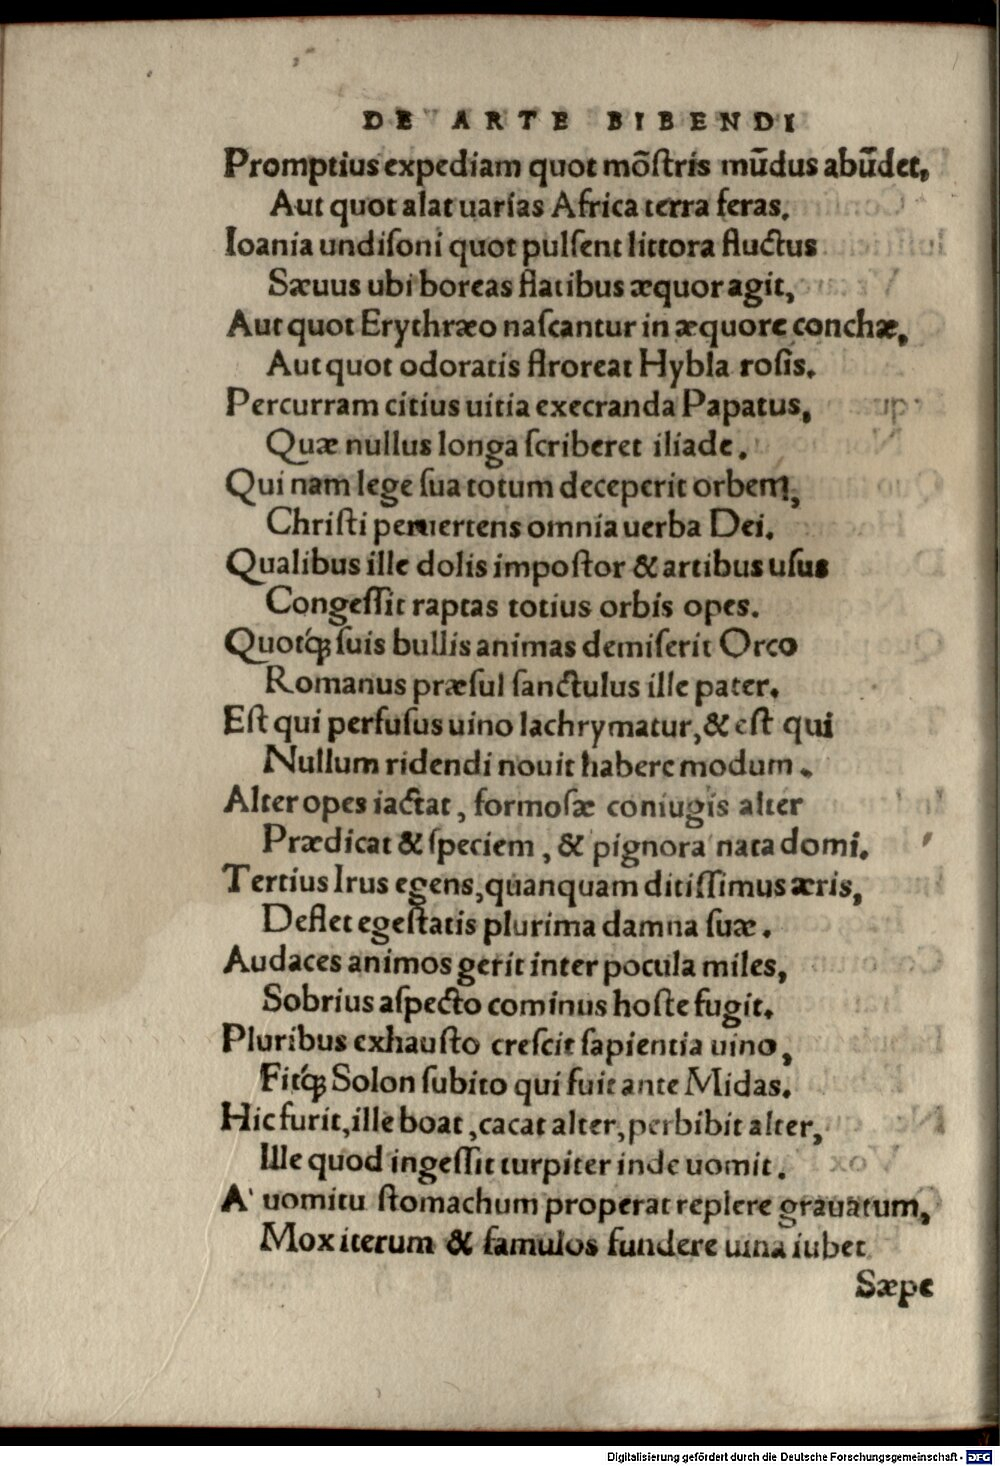 DE ARTE BIBENDI
Promptius expediam quot mõſtris mũdus abũdet,
Aut quot alat uarias Africa terra feras.
Ioania undiſoni quot pulſent littora fluctus
Sæuus ubi boreas flatibus æquor agit,
Aut quot Erythræo naſcantur in æquore conchæ,
Aut quot odoratis flroreat Hybla roſis.
Percurram citius uitia execranda Papatus,
Quæ nullus longa ſcriberet iliade.
Qui nam lege ſua totum deceperit orbem,
Chriſti peruertens omnia uerba Dei.
Qualibus ille dolis impoſtor & artibus uſus
Congeſſit raptas totius orbis opes.
Quotq́; ſuis bullis animas demiſerit Orco
Romanus præſul ſanctulus ille pater.
Eſt qui perfuſus uino lachrymatur, & eſt qui
Nullum ridendi nouit habere modum.
Alter opes iactat, formoſæ coniugis alter
Prædicat & ſpeciem, & pignora nata domi.
Tertius Irus egens, quanquam ditiſſimus æris,
Deflet egeſtatis plurima damna ſuæ.
Audaces animos gerit inter pocula miles,
Sobrius aſpecto cominus hoſte fugit.
Pluribus exhauſto creſcit ſapientia uino,
Fitq́; Solon ſubito qui fuit ante Midas.
Hic furit, ille boat, cacat alter, perbibit alter,
Ille quod ingeſſit turpiter inde uomit.
A' uomitu ſtomachum properat replere grauatum,
Mox iterum & famulos fundere uina iubet
Sæpe
Digitalisierung gefördert durch die Deutsche Forschungsgemeinschaft - DFG